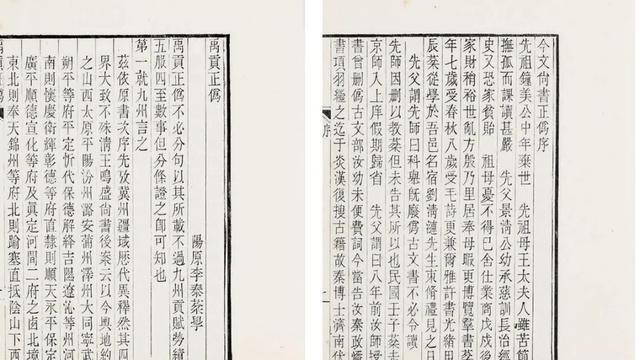 今文尚書正僞序
先祖鍾美公中年棄世　先祖母王太夫人雖苦節
撫孤而課讀甚嚴　先父景清公幼承慈訓長治經
史又恐家貧貽　祖母憂不得已舍仕業商戊戌後
家財稍裕世亂方殷乃里居奉母暇更博覽羣書棻
年七歲受春秋八歲受毛詩更兼爾雅許書光緒甲
辰棻從學於吾邑名宿劉清漣先生束脩禮見之日
先父謂先師曰科舉既廢僞古文書不必令讀
先師因刪以教棻但未告其所以也民國壬子棻
京師入上庠假期歸省　先父謂曰八年前
書曾刪僞古文部汝幼未便費詞今當告汝
書項羽繼之迄于炎漢復搜古籍故秦博士濟南伏
序
禹貢正僞
陽原李泰棻學
禹貢正僞不必分句以其所載不過九州貢賦
五服四至數事但分條證之卽可知也
第一就九州言之
茲依原書次序先攷冀州疆域歷代異釋然其四
界大致不殊清王鳴盛尚書後案云以今輿地約
之山西太原平陽汾州潞安蒲州澤州大同寧武
朔平等府平定忻代保德解絳吉隰遼沁等州河
南則懷慶衛輝彰德等府直隸則順天永平保定
廣平順德宣化等府及眞定河間二府之西北境
東北則奉天錦州等府北則踰塞直抵陰山下西